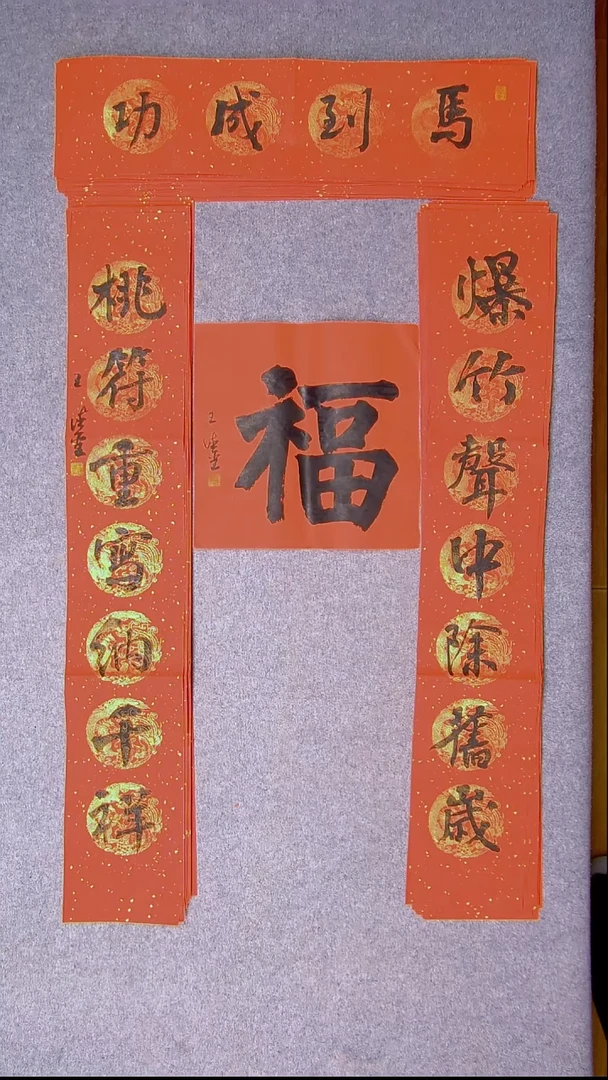 馬到成功
爆竹聲中除舊歲
桃符重寫納千祥
福